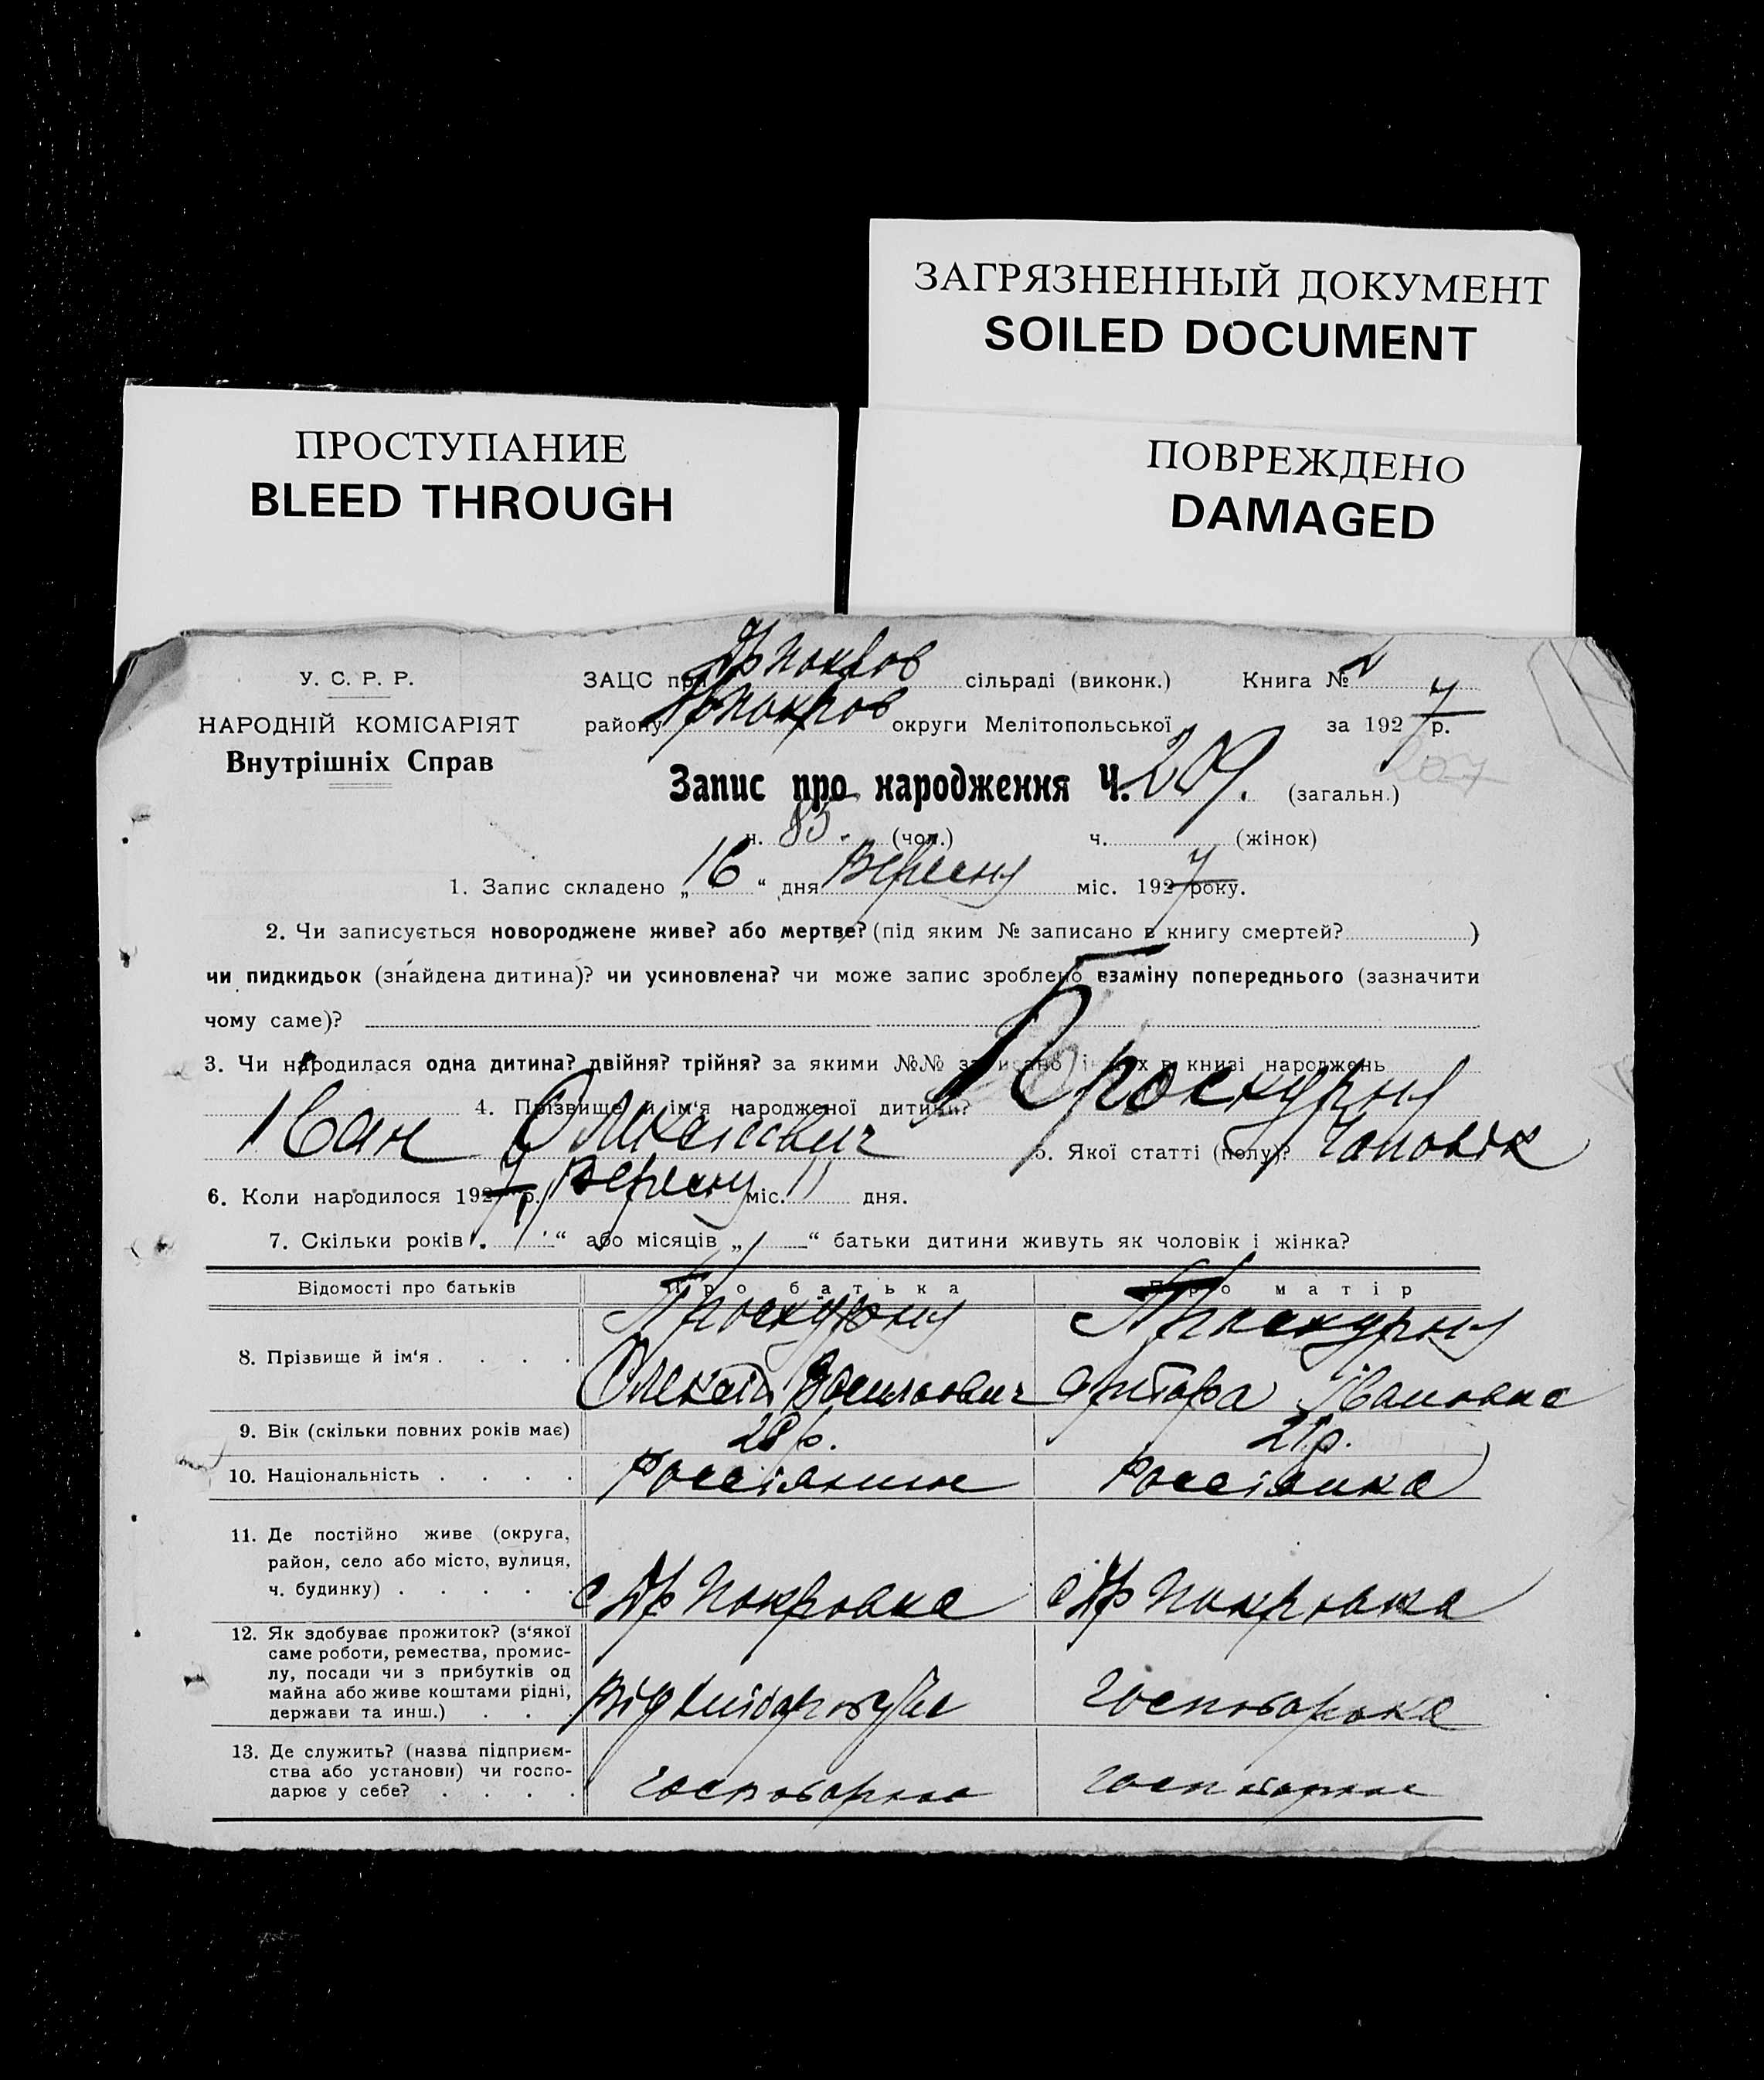 ЗАГРЯЗНЕННЫЙ ДОКУМЕНТ
SOILED DOCUMENT
ПРОСТУПАНИЕ
BLEED THROUGH
ПОВРЕЖДЕНО
DAMAGED
У. С. Р. Р.
НАРОДНІЙ КОМІСАРІЯТ
Внутрішніх Справ
ЗАЦС при Нр Покров сільраді (виконк.) Книга №
району Нр Покров округи Мелітопольської за 1927 р.
Запис про народження Ч. 209. (загальн.)
207
ч. 85. (чол.) ч. (жінок)
1. Запис складено „16“ дня Вересня міс. 1927 року.
2. Чи записується новороджене живе? або мертве? (під яким № записано в книгу смертей? )
чи пидкидьок (знайдена дитина)? чи усиновлена? чи може запис зроблено взаміну попереднього (зазначити
чому саме)?
3. Чи народилася одна дитина? двійня? трійня? за якими №№ записано інших в книзі народжень
4. Прізвище й ім‘я народженої дитини? Проскурня
Іван Олексієвич 5. Якої статті (полу)? Чоловік
6. Коли народилося 1927 р. Вересня міс. 11 дня.
7. Скільки років „ “ або місяців „ “ батьки дитини живуть як чоловік і жінка?
Відомості про батьків Про батька Про матір
8. Прізвище й ім‘я . . . . Проскурня Проскурня
Олексій Васильович Івановна
9. Вік (скільки повних років має) 28 р. 21 р.
10. Національність . . . . Россіянин Россіянка
11. Де постійно живе (округа,
район, село або місто, вулиця,
ч. будинку) . . . . . с Нр Покровка с Нр Покровка
12. Як здобуває прожиток? (з‘якої
саме роботи, ремества, промис-
лу, посади чи з прибутків од
майна або живе коштами рідні,
держави та инш.) . . . Від Господарка
13. Де служить? (назва підприєм-
ства або установи) чи госпо-
дарює у себе? . . . .